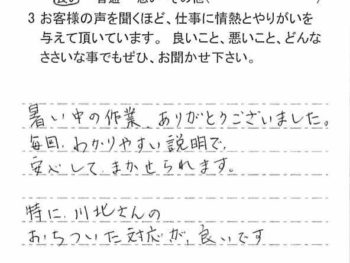 3 お客様の声を聞くほど、仕事に情熱とやりがいを
与えて頂いています。 良いこと、悪いこと、どんな
ささいな事でもぜひ、お聞かせ下さい。
暑い中の作業、ありがとうございました。
毎回、わかりやすい説明で、
安心して、まかせられます。
特に、川北さんの
おちついた対応が、良いです